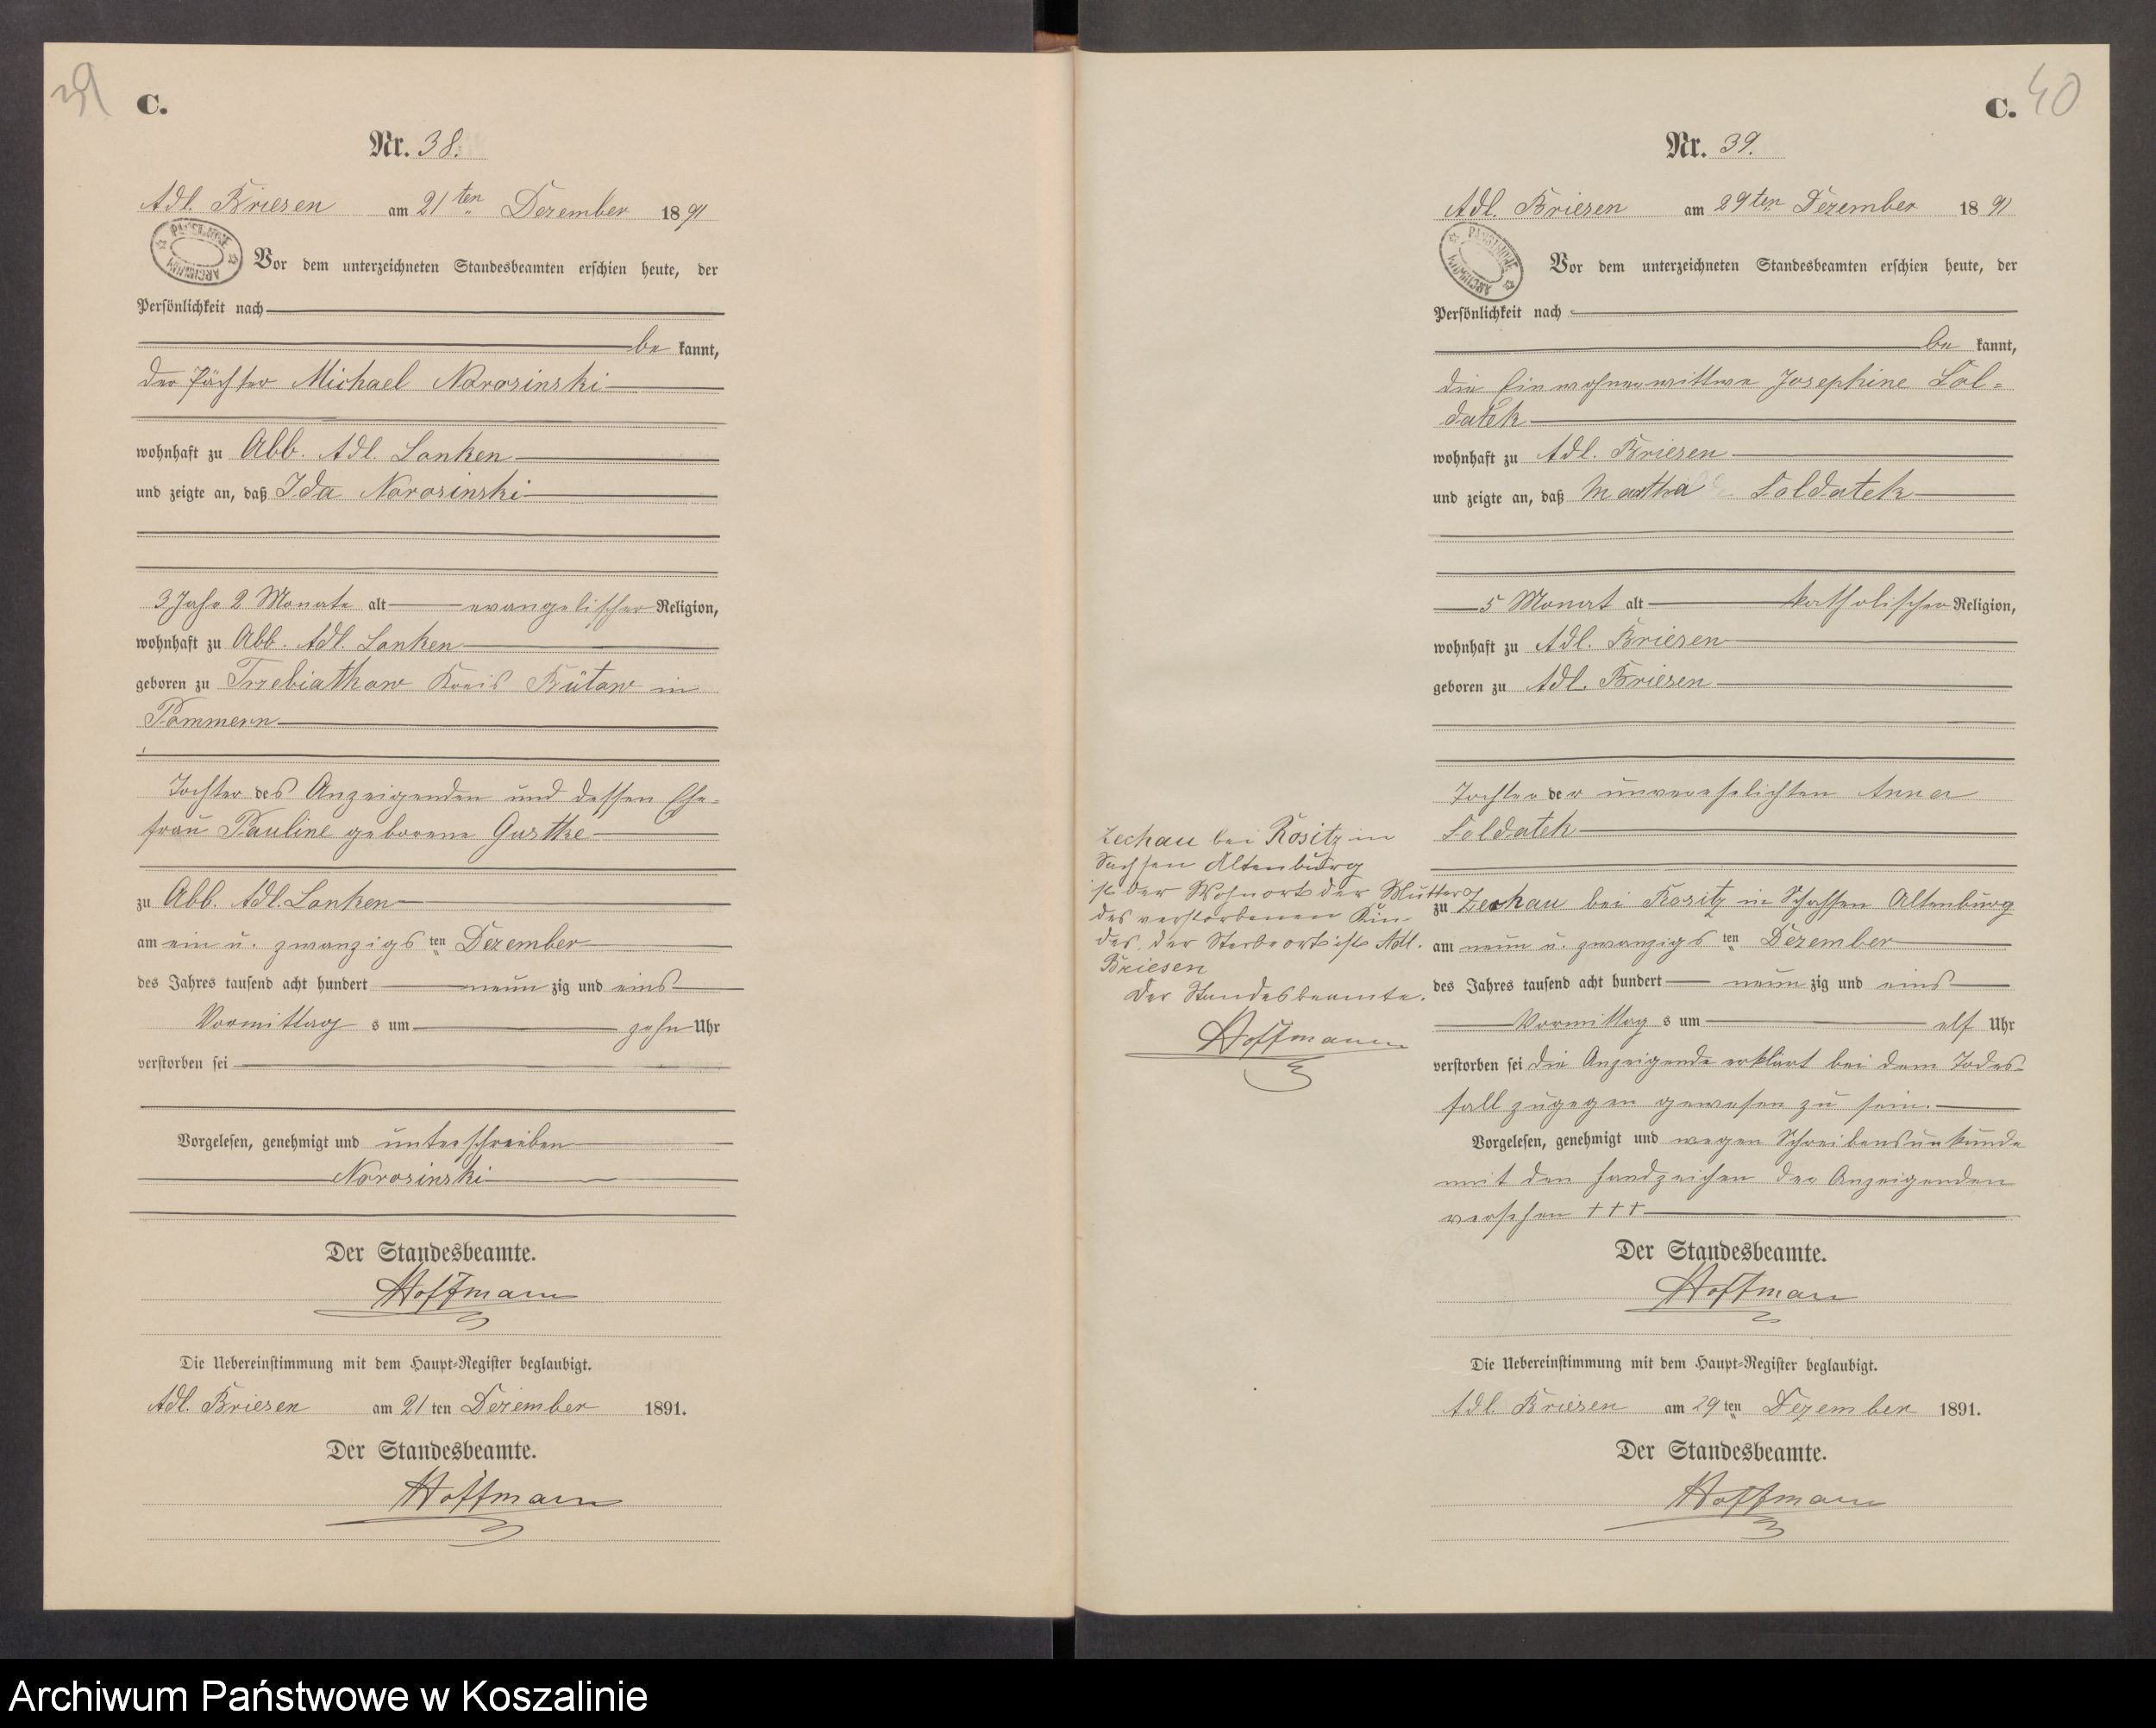 39
C.
Nr. 38.
Adl. Briesen am 21ten Dezember 1891
PAŃSTWOWE ARCHIWUM
Vor dem unterzeichneten Standesbeamten erschien heute, der
Persönlichkeit nach
be kannt,
der Pächter Michael
wohnhaft zu Abb. Adl. Lanken
und zeigte an, daß Ida
3 Jahr 2 Monate alt evangelischer Religion,
wohnhaft zu Abb. Adl. Lanken
geboren zu Trzebiatkow Kreis Bütow in
Pommern
Tochter des Anzeigenden und dessen Ehe-
frau Pauline geborene Gustke
zu Abb. Adl. Lanken
am ein u. zwanzigsten Dezember
des Jahres tausend acht hundert neun zig und eins
Vormittag s um zehn Uhr
verstorben sei
Vorgelesen, genehmigt und unterschrieben
Der Standesbeamte.
Hoffmann
Die Uebereinstimmung mit dem Haupt-Register beglaubigt.
Adl. Briesen am 21 ten Dezember 1891.
Der Standesbeamte.
Hoffmann
40
C.
Nr. 39.
Adl. Briesen am 29ten Dezember 1891
PAŃSTWOWE ARCHIWUM
Vor dem unterzeichneten Standesbeamten erschien heute, der
Persönlichkeit nach
be kannt,
die Einwohnerwittwe Josephine Sol-
datek
wohnhaft zu Adl. Briesen
und zeigte an, daß Martha Soldatek
5 Monat alt katholischer Religion,
wohnhaft zu Adl. Briesen
geboren zu Adl. Briesen
Tochter der unverehelichten Anna
Soldatek
zu Zechau bei Rositz in Sachsen Altenburg
am neun u. zwanzigsten Dezember
des Jahres tausend acht hundert neun zig und eins
Vormittag s um elf Uhr
verstorben sei die Anzeigende erklärt bei dem Todes-
fall zugegen gewesen zu sein.
Vorgelesen, genehmigt und wegen Schreibensunkunde
mit den Handzeichen der Anzeigenden
versehen +++
Der Standesbeamte.
Hoffmann
Die Uebereinstimmung mit dem Haupt-Register beglaubigt.
Adl. Briesen am 29 ten Dezember 1891.
Der Standesbeamte.
Hoffmann
Zechau bei Rositz in
Sachsen Altenburg
ist der Wohnort der Mutter
des verstorbenen Kin-
des. der Sterbeort ist Adl.
Briesen
Der Standesbeamte.
Hoffmann
Archiwum Państwowe w Koszalinie